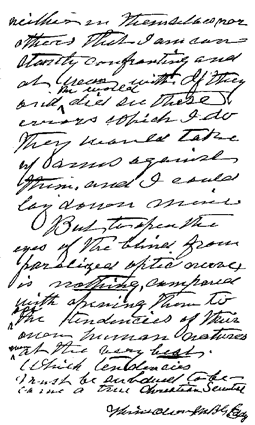 neither in themselves nor
others that I am con-
stantly confronting and
at war with. If they
in world
and did see these
errors which I do
they would take
up arms against
them, and I could
lay down mine
But to open the
eyes of the blind from
paralized optic nerves,
is nothing, compared
with opening them to
the tendencies of their
own human natures
at the very best.
Which tendencies
must be subdued to be-
come a true Christian Scientist
Mary Baker Eddy